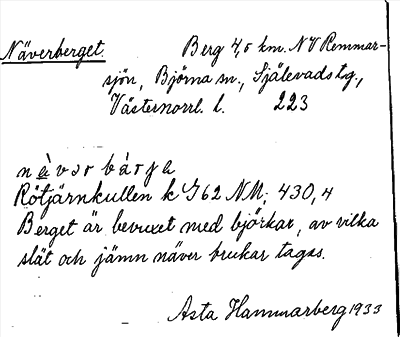 Näverberget. Berg 4,5 km. NV Remmar-
sjön, Björna sn., Själevads tg.,
Västernorrl. l. 223
Rötjärnkullen k G62 NM; 430,4
Berget är bevuxet med björkar, av vilka
slät och jämn näver brukar tagas.
Asta Hammarberg 1933